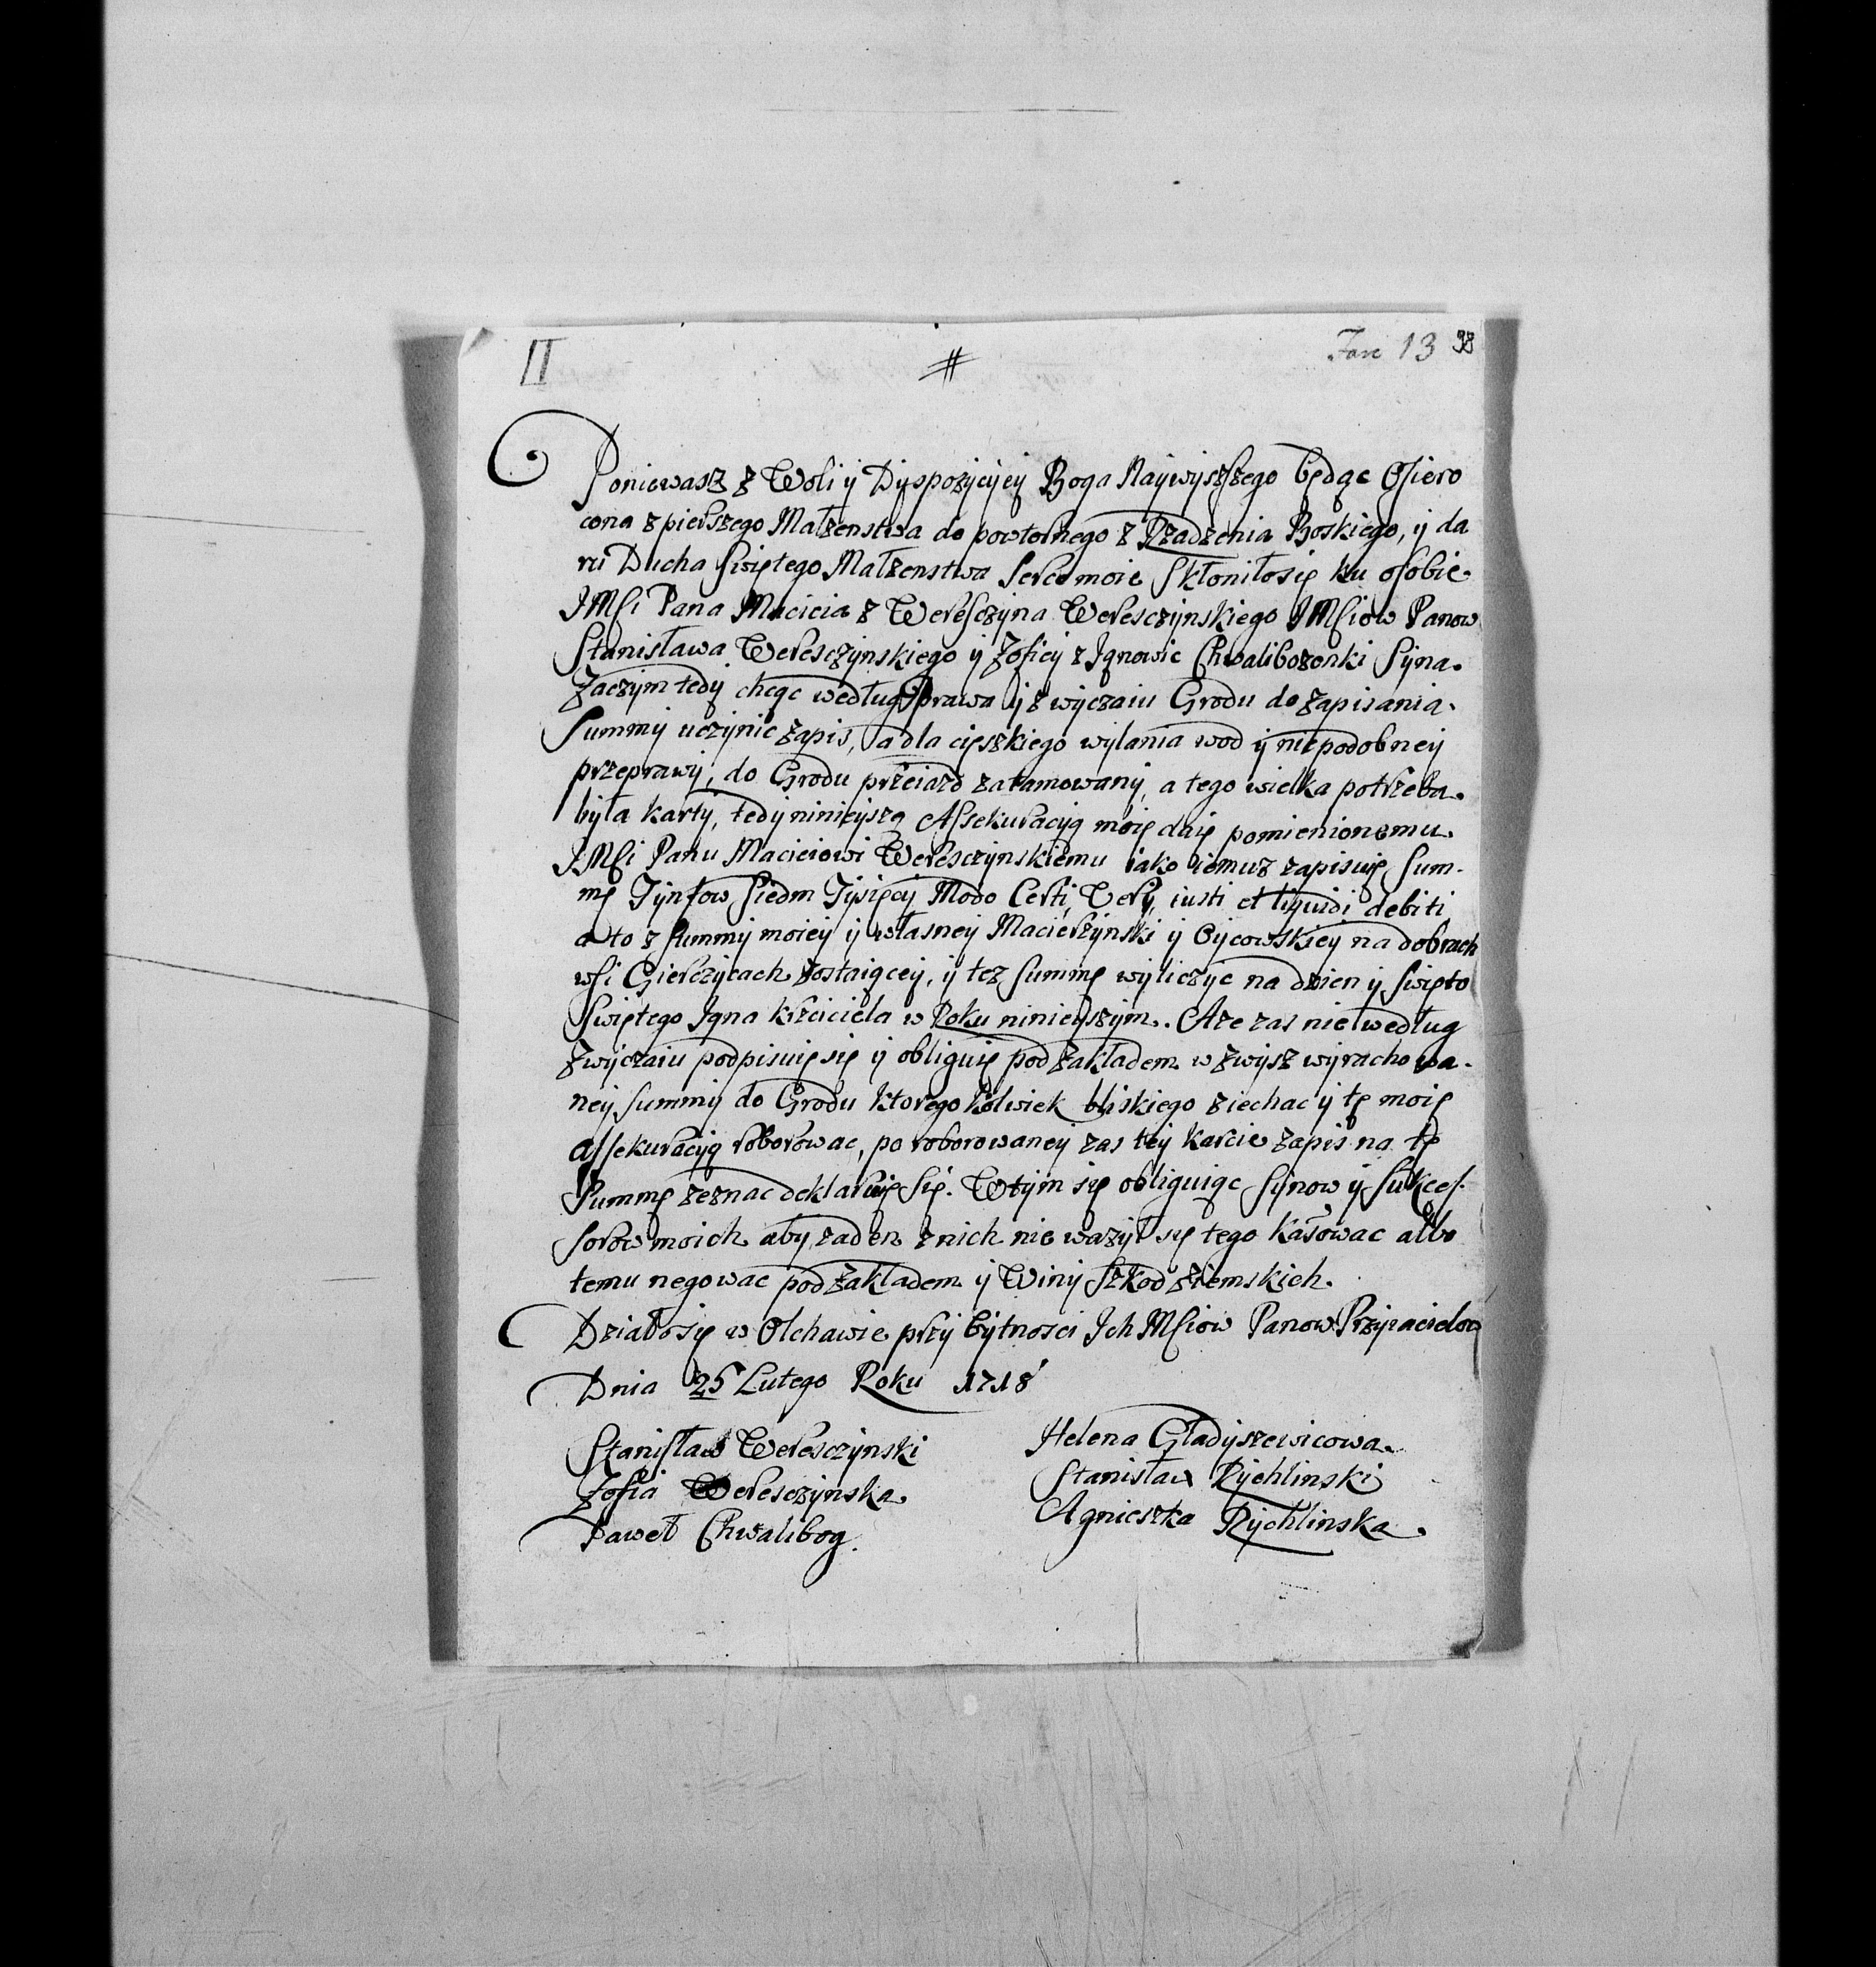 II # Fasc 13 98
Poniewasz z Woli y Dyspozycyey Boga Naywyszszego będąc Osiero
cona z pierszego Małzenstwa do powtornego z Rządzenia Boskiego, y da
ru Ducha Swiętego Małzenstwa Serce moie Skłoniłosię ku osobie
JMsi Pana Macieia z Weresczyna Weresczynskiego JMsiow Panow
Stanisława Weresczynskiego y Zofiey z Jgnowic Chwalibozonki Syna.
Zaczym tedy chcąc według Prawa y zwyczaiu Grodu do zapisania
Summy uczynic zapis, a dla cięszkiego wylania wod y niepodobney
przeprawy, do Grodu przeiazd zatamowany, a tego wielka potrzeba
była karty, tedy ninieyszą Assekuracyą moię daię pomienionemu
JMsi Panu Macieiowi Weresczynskiemu iako iemusz zapisuię Sum-
mę Tynfow Siedm Tysięcy Modo Certi, Very, iusti et liquidi debiti
a to z summy moiey y własney Macierzynski y Oycowskiey na dobrach
wsi Gierczycach zostaiącey, y tez summę wyliczyc na dzien y Swięto
Swiętego Jana krzciciela w Roku ninieyszym. Aze zas nie według
Zwyczaiu podpisuię się y obliguię pod zakładem wzwysz wyrachowa-
ney summy do Grodu ktorego kolwiek bliskiego ziechac y tę moię
assekuracyą roborowac, po roborowaney zas tey karcie zapis na tę
Summę zeznac deklaruię Się. W tym się obliguiąc Synow y Sukces-
sorow moich aby zaden z nich nie wazył się tego kasowac albo
temu negowac pod zakładem y Winy Szkod ziemskich.
Działosię w Olchawie przy bytnosci Ich Msiow Panow Przyiacielow
Dnia 25 Lutego Roku 1718
Stanisław Weresczynski
Zofia Weresczynska
Paweł Chwalibog.
Helena Gładyszewicowa
Stanisław Rychlinski
Agnieszka Rychlinska